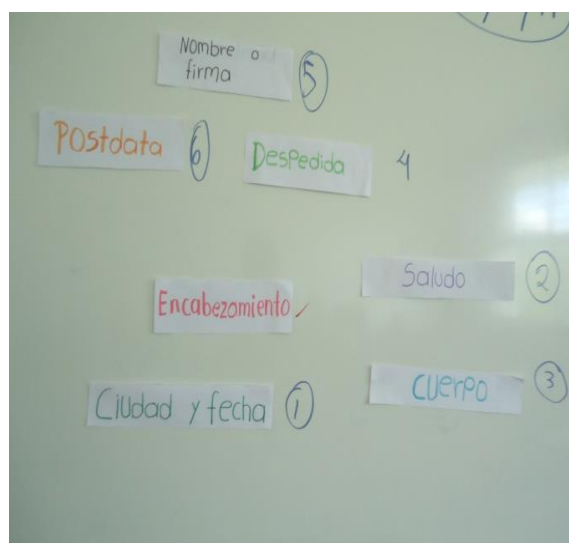 Nombre o
firma
5
Postdata 6
Despedida 4
Saludo 2
Encabezamiento
Cuerpo 3
Ciudad y fecha 1